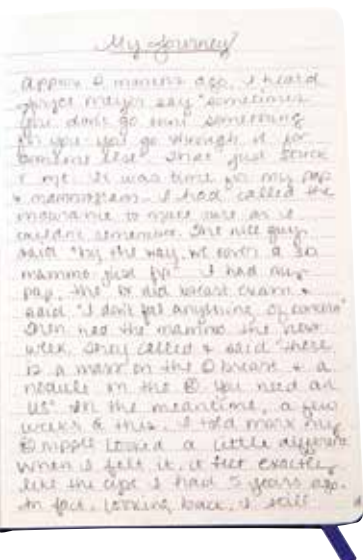 My Journey
approx 2 months ago, I heard
Joyce Meyer say "sometimes
you don't go thru something
for you you go through it for
someone else" That just stuck
c me. It was time for my pap
& mammogram. I had called the
insurance to make sure as I
couldn't remember. The nice guy
said "by the way, we cover a 3D
mammo just fyi" I had my
pap, the Dr did breast exam &
said "I don't feel anything of concern"
Then had the mammo the next
week. They called & said "there
is a mass on the breast & a
nodule on the You need an
US" In the meantime, a few
weeks this, I told mark my
nipple looked a little different
When I felt it, it felt exactly
like the cyst I had 5 years ago.
In fact, looking back, I still